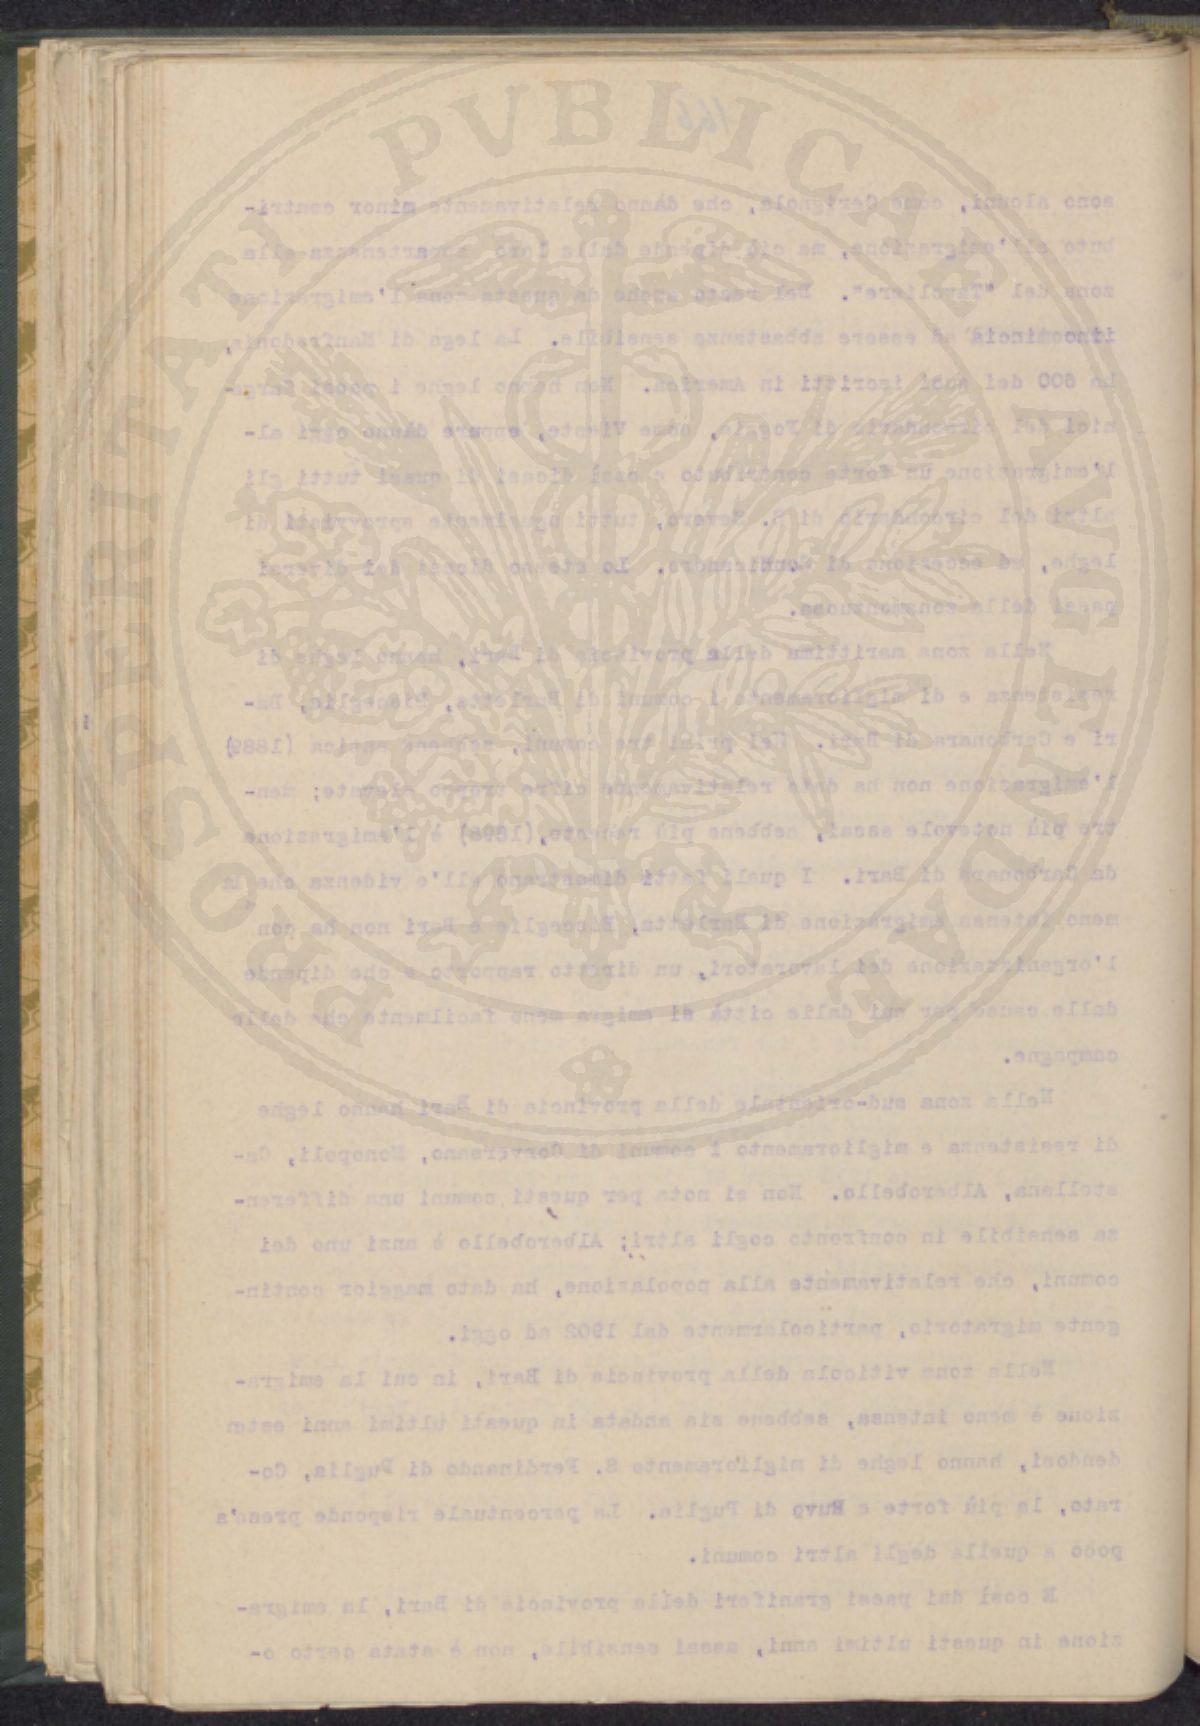 PUBLICAE AUGENDAE PROSPERITATI
166
sono alcuni, come Cerignola, che dànno relativamente minor contri-
buto all'emigrazione, ma ciò dipende dalla loro appartenenza alla
zona del "Tavoliere". Del resto anche da questa zona l'emigrazione
incomincia ad essere abbastanza sensibile. La lega di Manfredonia,
ha 600 dei soci iscritti in America. Non hanno leghe i paesi Garga-
nici del circondario di Foggia, come Vieste, eppure dànno oggi al-
l'emigrazione un forte contributo e così dicasi di quasi tutti gli
altri del circondario di S. Severo, tutti egualmente sprovvisti di
leghe, ad eccezione di Sannicandro. Lo stesso dicasi dei diversi
paesi della zona montuosa.
Nella zona marittima della provincia di Bari, hanno leghe di
resistenza e di miglioramento i comuni di Barletta, Bisceglie, Ba-
ri e Carbonara di Bari. Nei primi tre comuni, sebbene antica (1889)
l'emigrazione non ha dato relativamente cifre troppo elevate; men-
tre più notevole assai, sebbene più recente, (1898) è l'emigrazione
da Carbonara di Bari. I quali fatti dimostrano all'evidenza che la
meno intensa emigrazione di Barletta, Bisceglie e Bari non ha con
l'organizzazione dei lavoratori, un diretto rapporto e che dipende
dalle cause per cui dalle città si emigra meno facilmente che dalle
campagne.
Nella zona sud-orientale della provincia di Bari hanno leghe
di resistenza e miglioramento i comuni di Conversano, Monopoli, Ca-
stellana, Alberobello. Non si nota per questi comuni una differen-
za sensibile in confronto cogli altri; Alberobello è anzi uno dei
comuni, che relativamente alla popolazione, ha dato maggior contin-
gente migratorio, particolarmente dal 1902 ad oggi.
Nella zona viticola della provincia di Bari, in cui la emigra-
zione è meno intensa, sebbene sia andata in questi ultimi anni esten
dendosi, hanno leghe di miglioramento S. Ferdinando di Puglia, Co-
rato, la più forte e Ruvo di Puglia. La percentuale risponde press'a
poco a quella degli altri comuni.
E così dai paesi graniferi della provincia di Bari, la emigra-
zione in questi ultimi anni, assai sensibile, non è stata certo o-